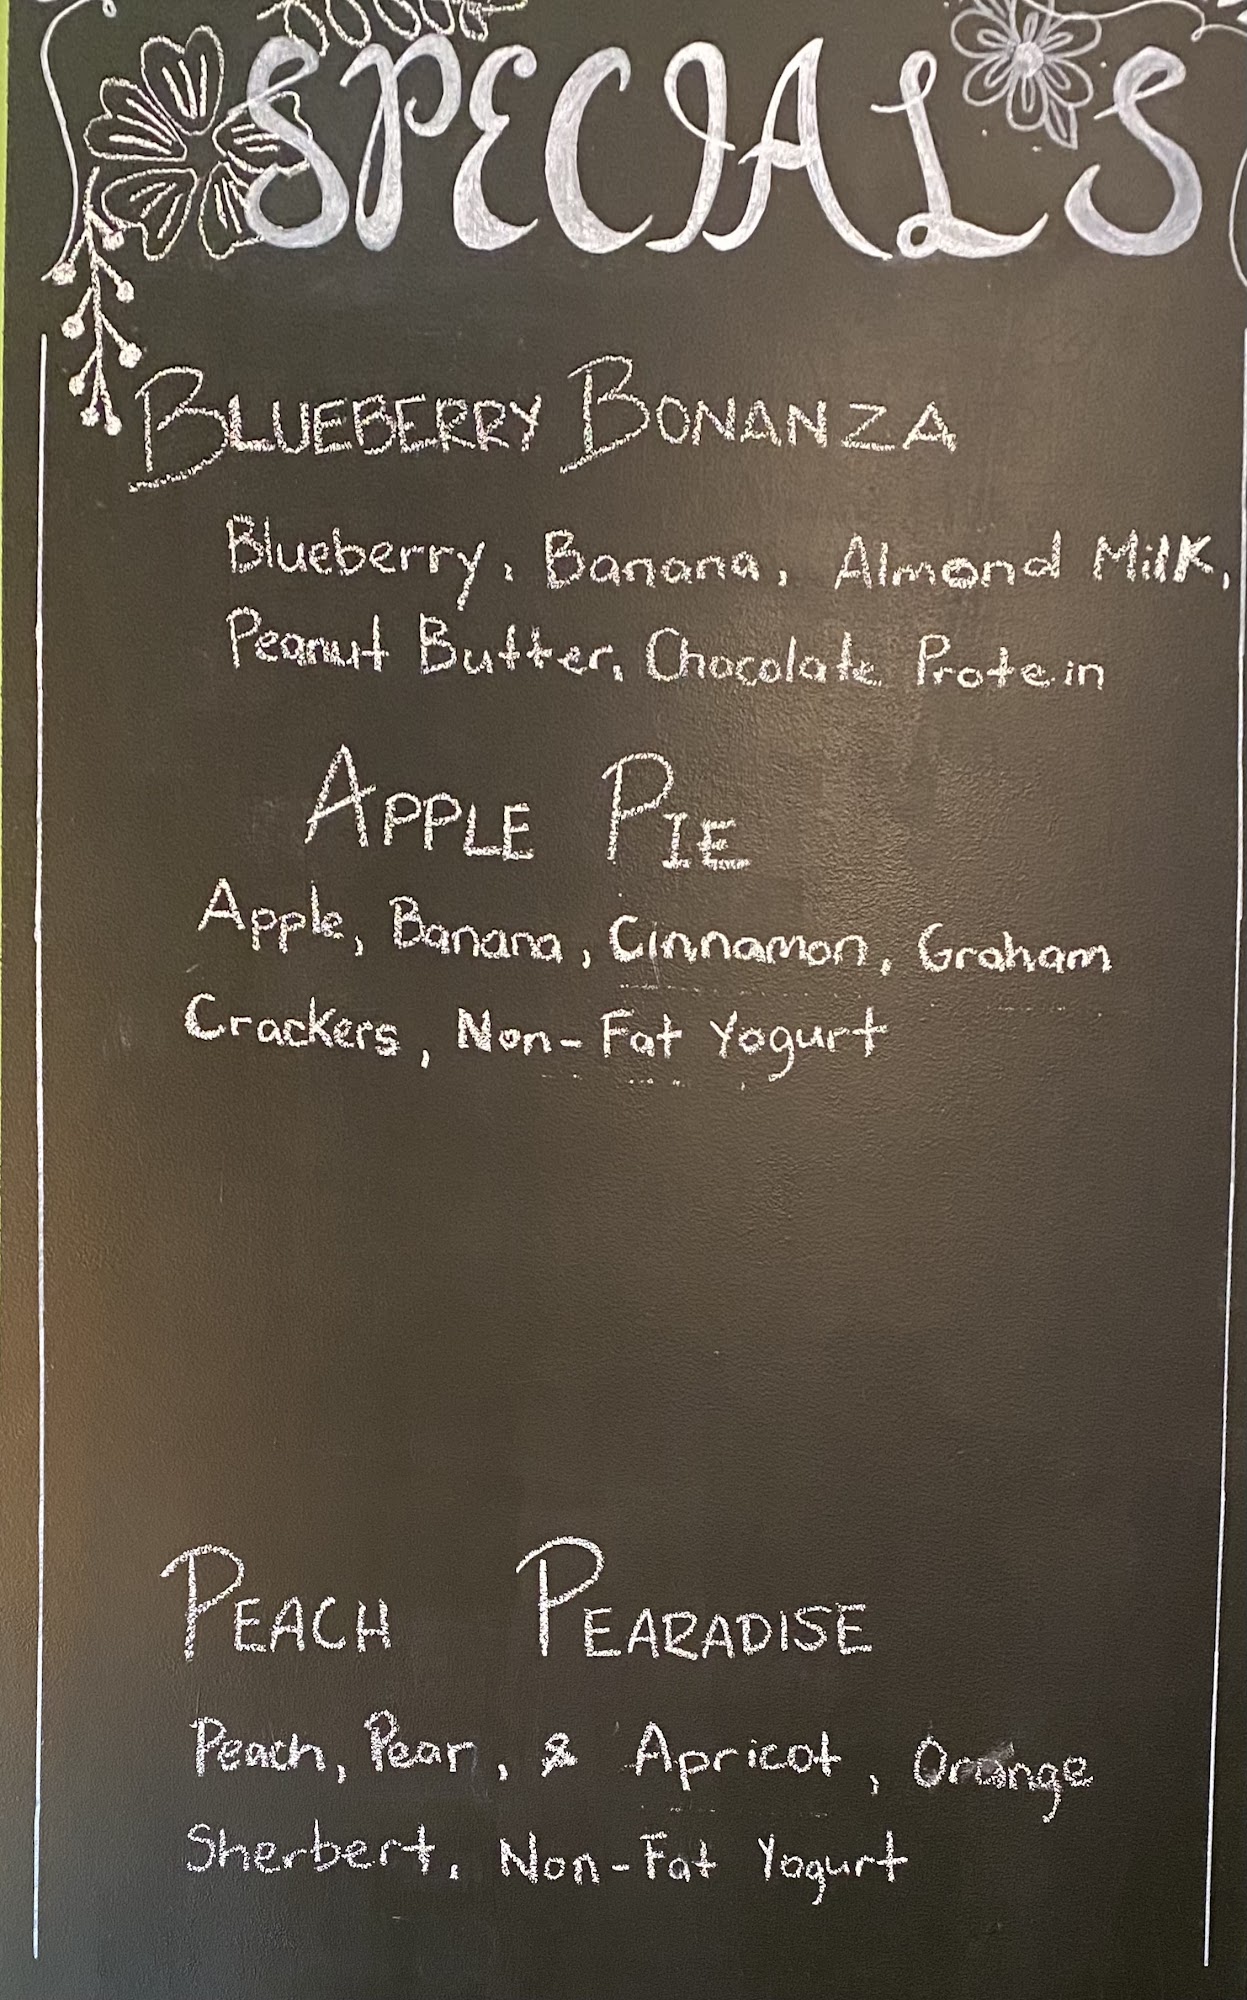 SPECIALS
BLUEBERRY BONANZA
Blueberry, Banana, Almond Milk,
Peanut Butter, Chocolate Protein
APPLE PIE
Apple, Banana, Cinnamon, Graham
Crackers, Non-Fat Yogurt
PEACH PEARADISE
Peach, Pear, & Apricot, Orange
Sherbert, Non-Fat Yogurt